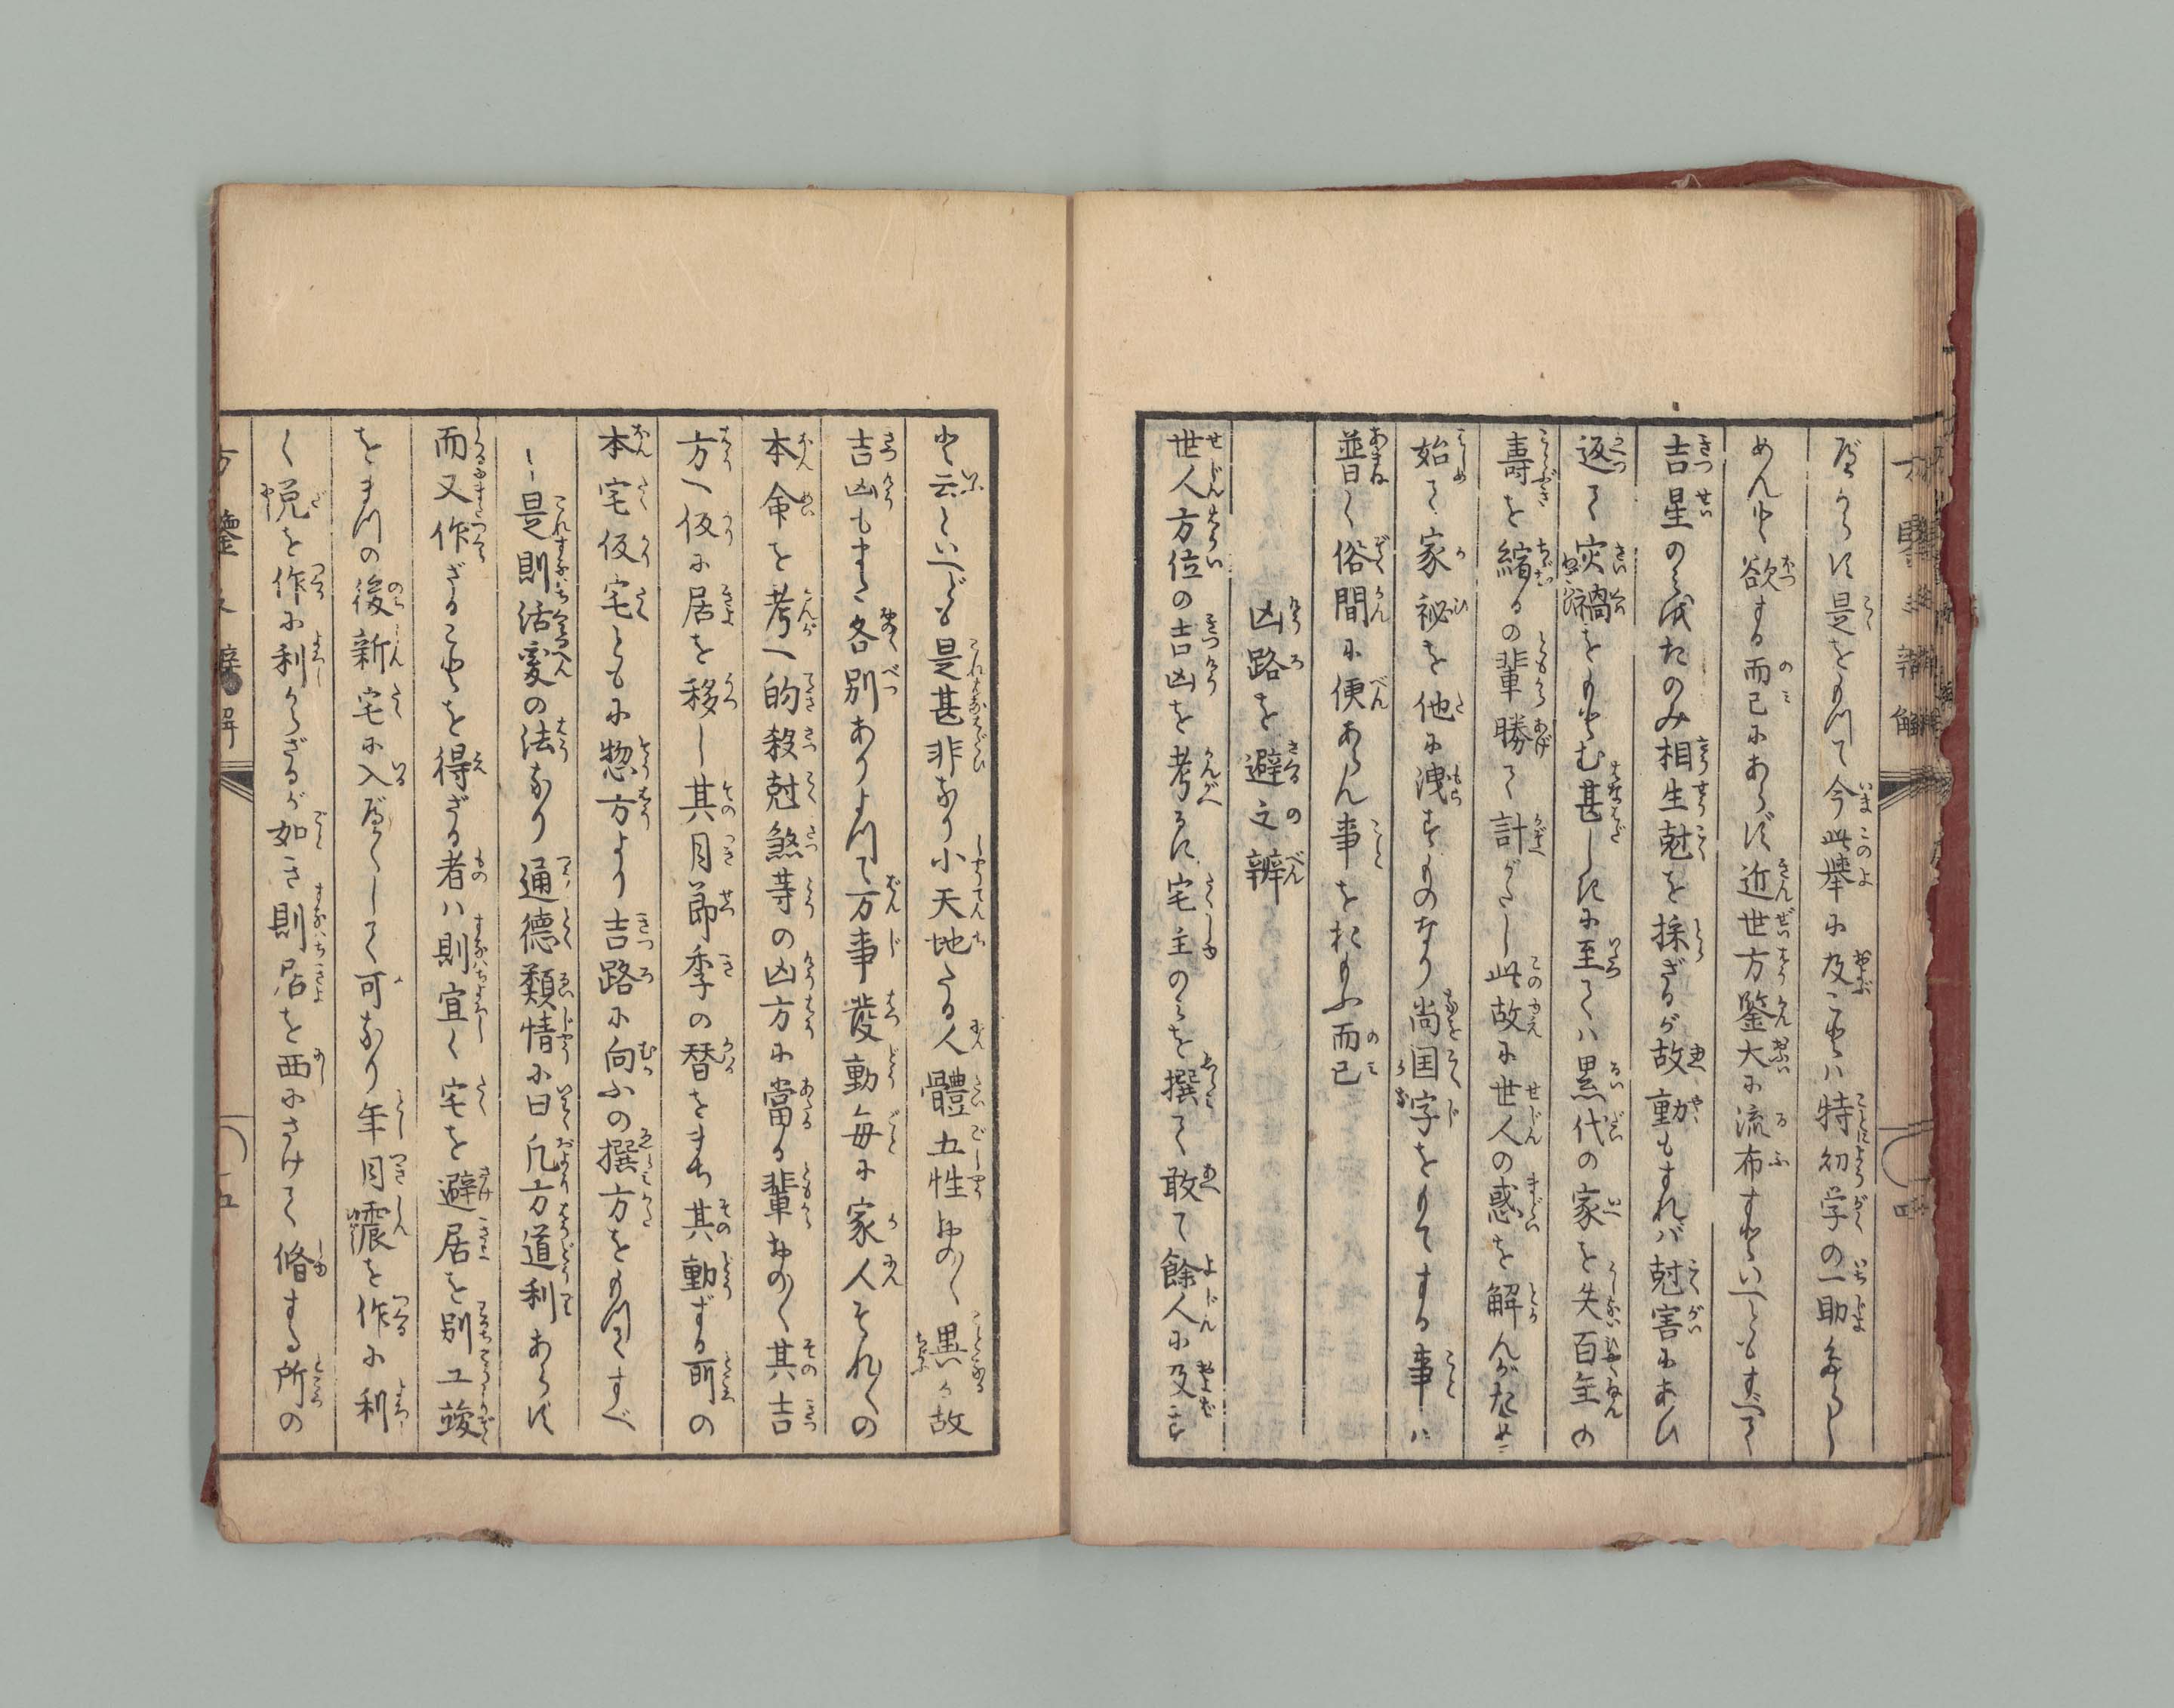 べからず是をもつて今此挙に及ことハ特初学の一助ならし
めんと欲する而已にあらず近世方鑒大に流布すといへどもすべて
吉星のミをたのみ相生尅を採ざるが故動もすれバ尅害にあひ
返て灾禍をもとむ甚しきに至てハ累代の家を失百年の
壽を縮るの輩勝て計がたし此故に世人の惑を解んがため
始て家秘を他に洩すものなり尚国字をもてする事ハ
普く俗間に便あらん事をおもふ而已
凶路を避之辨
世人方位の吉凶を考るに宅主のミを撰て敢て餘人に及ず
と云といへども是甚非なり小天地たる人體五性おの〱異る故
吉凶もまた各別ありよつて万事發動毎に家人それ〱の
本命を考へ的殺尅煞等の凶方に當る輩おの〱其吉
方へ仮に居を移し其月節季の替をまち其動ずる所の
本宅仮宅ともに惣方より吉路に向ふの撰方をもつてすべ
し是則活変の法なり通徳類情に曰凡方道利あらず
而又作ざることを得ざる者ハ則宜く宅を避居を別エ竣
をまつの後新宅に入べくして可なり年月震を作に利
く兌を作に利からざるが如き則居を西にさけて脩する所の
方鑒必辨解
五